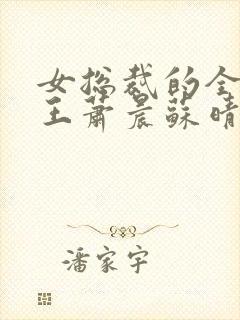 女总裁的全
王萧晨苏晴
潘家宇